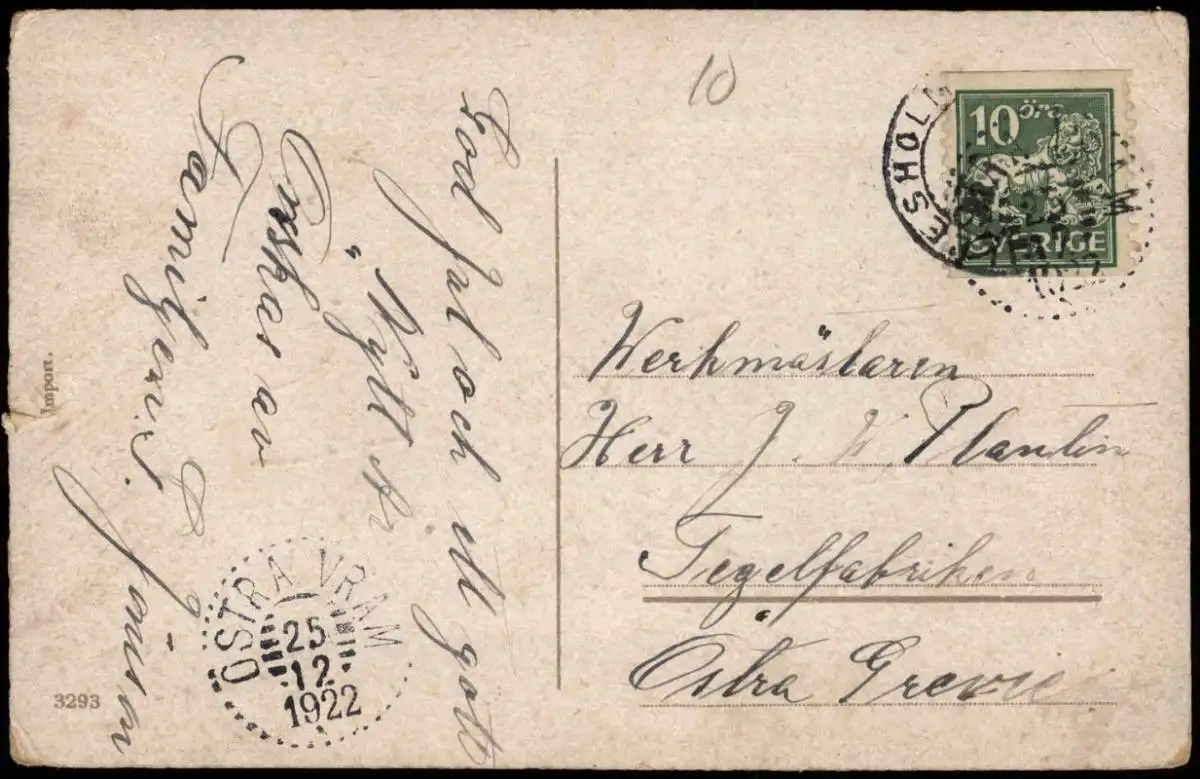 God Jul och ett gott
Nytt År
Önskas av
Familjen
10
10 öre
SVERIGE
ÖSTRA VRAM
25
12
1922
Werkmästaren
Herr J.
Tegelfabriken
Östra Grevie
Import.
3293